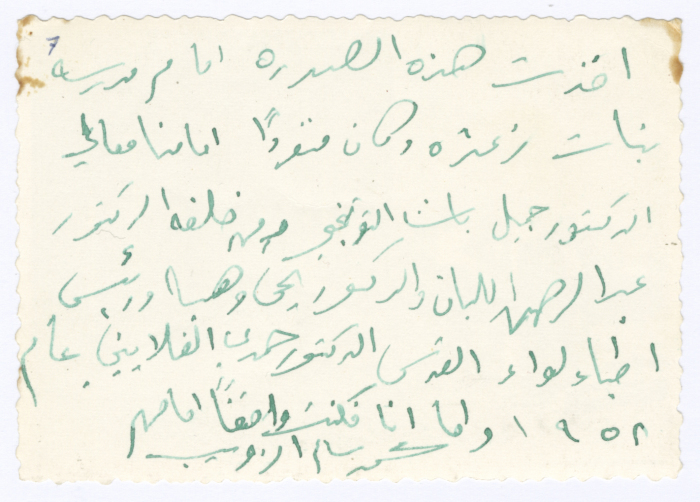 ٦
اخذت هذه الصوره امام مدرسة
بنات زعتره وكان متفردًا امامنا معالي
الدكتور جميل باشا التوتنجي ومن خلفه الدكتور
عبد الرحمن اللبان والدكتور يحي وهبا ورئيس
اطباء لواء القدس الدكتور حمدي الغلاييني عام
١٩٥٢ واما انا فكنت واقفًا امامهم
سالم